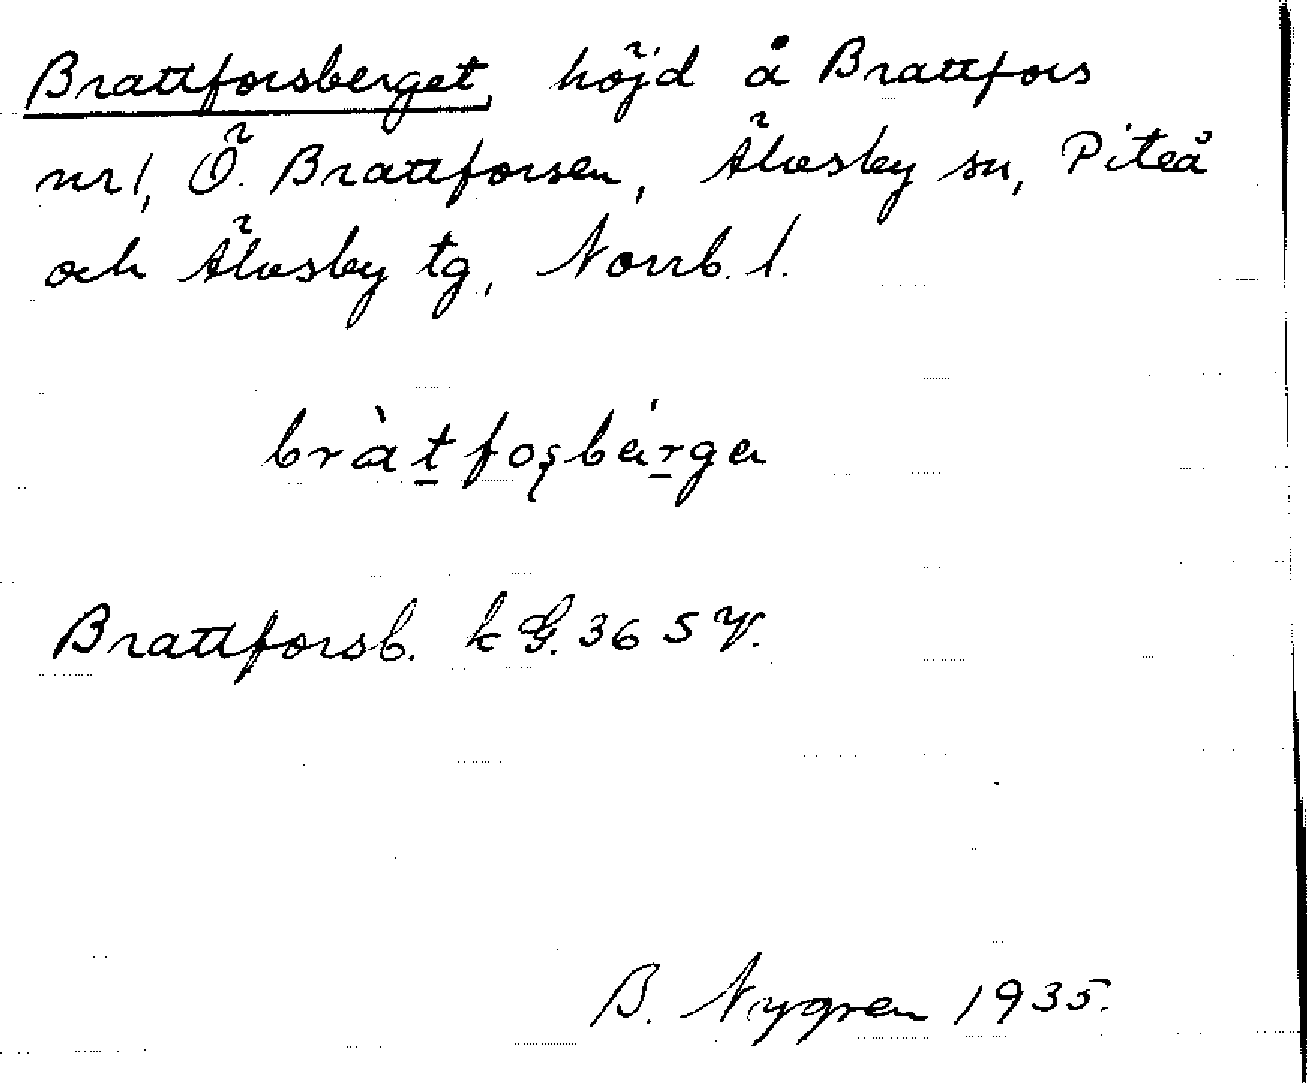 Brattforsberget, höjd å Brattfors
nr 1, Ö. Brattforsen, Älvsby sn, Piteå
och Älvsby tg, Norrb. l.
bràt̲fos̨bár̲ga
Brattforsb. k G. 36 5 V.
B. Nygren 1935.